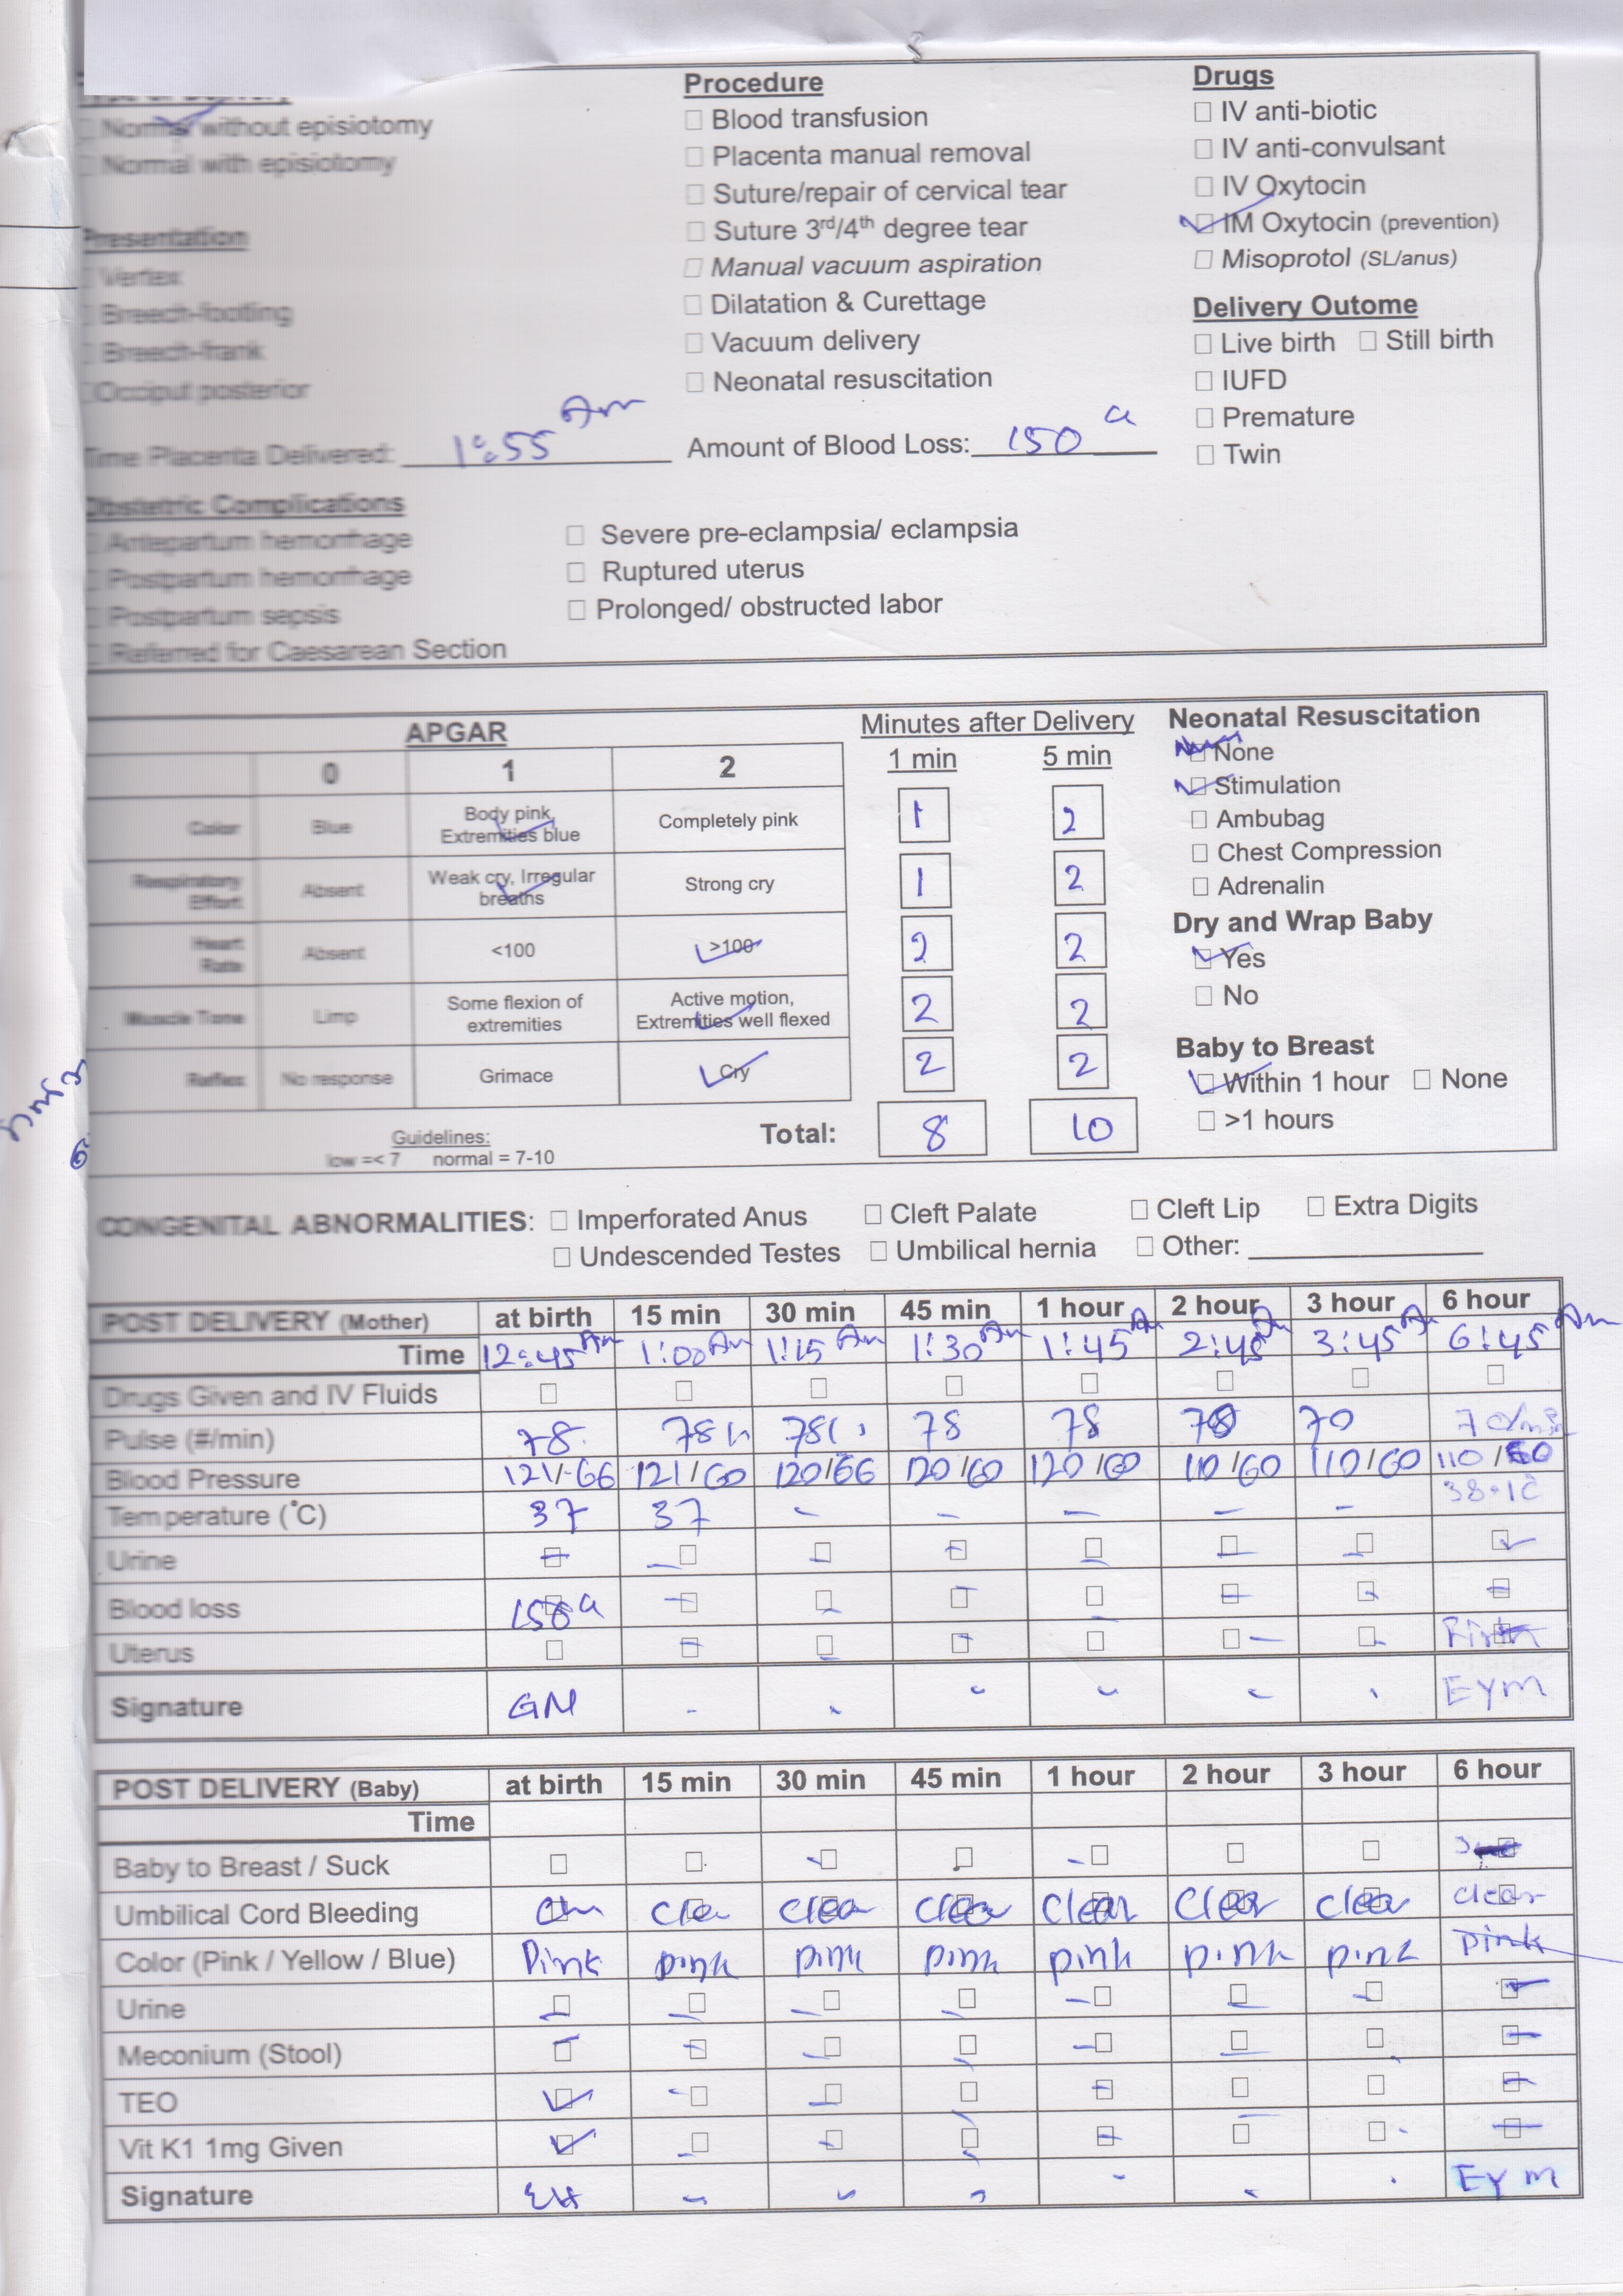 Type of Delivery
☑ Normal without episiotomy
☐ Normal with episiotomy
Presentation
☐ Vertex
☐ Breech-footling
☐ Breech-frank
☐ Occiput posterior
Time Placenta Delivered: 1:55 Am
Procedure
☐ Blood transfusion
☐ Placenta manual removal
☐ Suture/repair of cervical tear
☐ Suture 3rd/4th degree tear
☐ Manual vacuum aspiration
☐ Dilatation & Curettage
☐ Vacuum delivery
☐ Neonatal resuscitation
Amount of Blood Loss: 150
Drugs
☐ IV anti-biotic
☐ IV anti-convulsant
☐ IV Oxytocin
☑ IM Oxytocin (prevention)
☐ Misoprotol (SL/anus)
Delivery Outome
☐ Live birth ☐ Still birth
☐ IUFD
☐ Premature
☐ Twin
Obstetric Complications
☐ Antepartum hemorrhage ☐ Severe pre-eclampsia/ eclampsia
☐ Postpartum hemorrhage ☐ Ruptured uterus
☐ Postpartum sepsis ☐ Prolonged/ obstructed labor
☐ Referred for Caesarean Section
APGAR Minutes after Delivery
0 1 2 1 min 5 min
Color Blue Body pink, Extremities blue Completely pink 1 2
Respiratory Effort Absent Weak cry, Irregular breaths Strong cry 1 2
Heart Rate Absent <100 >100 2 2
Muscle Tone Limp Some flexion of extremities Active motion, Extremities well flexed 2 2
Reflex No response Grimace Cry 2 2
Guidelines: Total: 8 10
low =< 7 normal = 7-10
Neonatal Resuscitation
☐ None
☑ Stimulation
☐ Ambubag
☐ Chest Compression
☐ Adrenalin
Dry and Wrap Baby
☑ Yes
☐ No
Baby to Breast
☑ Within 1 hour ☐ None
☐ >1 hours
CONGENITAL ABNORMALITIES: ☐ Imperforated Anus ☐ Cleft Palate ☐ Cleft Lip ☐ Extra Digits
☐ Undescended Testes ☐ Umbilical hernia ☐ Other:
POST DELIVERY (Mother) at birth 15 min 30 min 45 min 1 hour 2 hour 3 hour 6 hour
Time 12:45 Am 1:00 Am 1:15 Am 1:30 Am 1:45 Am 2:45 Am 3:45 A 6:45 Am
Drugs Given and IV Fluids
Pulse (#/min) 78 78 78 78 78 78 70 70/min
Blood Pressure 121/66 121/60 120/66 120/60 120/60 110/60 110/60 110/60
Temperature (°C) 37 37 - - - - - 38.1c
Urine - - - - - - - ✓
Blood loss 150 - - - - - - -
Uterus - - - - - -
Signature GM - - - - - - Eym
POST DELIVERY (Baby) at birth 15 min 30 min 45 min 1 hour 2 hour 3 hour 6 hour
Time
Baby to Breast / Suck
Umbilical Cord Bleeding clea clea clea clear clear clear clear
Color (Pink / Yellow / Blue) Pink pink pink pink pink pink pink pink
Urine - - - - - - - ✓
Meconium (Stool) - - - - - - - -
TEO ✓ - - - - - - -
Vit K1 1mg Given ✓ - - - - - - -
Signature - - - - - - Eym